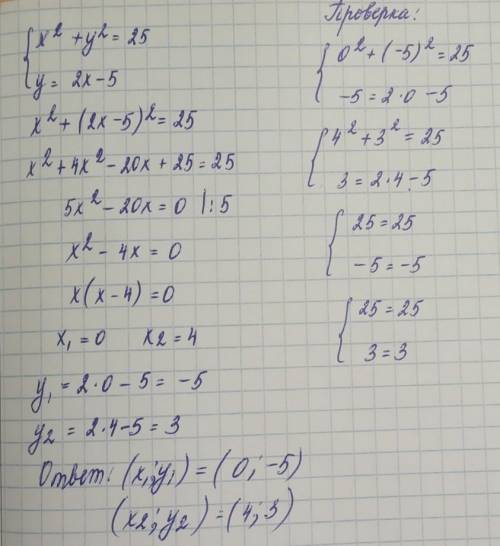 x² + y² = 25
y = 2x - 5
x² + (2x - 5)² = 25
x² + 4x² - 20x + 25 = 25
5x² - 20x = 0 |: 5
x² - 4x = 0
x(x - 4) = 0
x₁ = 0 x2 = 4
y₁ = 2·0 - 5 = -5
y2 = 2·4 - 5 = 3
Ответ: (x₁; y₁) = (0; -5)
(x2; y2) = (4; 3)
Проверка:
0² + (-5)² = 25
-5 = 2·0 - 5
4² + 3² = 25
3 = 2·4 - 5
25 = 25
-5 = -5
25 = 25
3 = 3